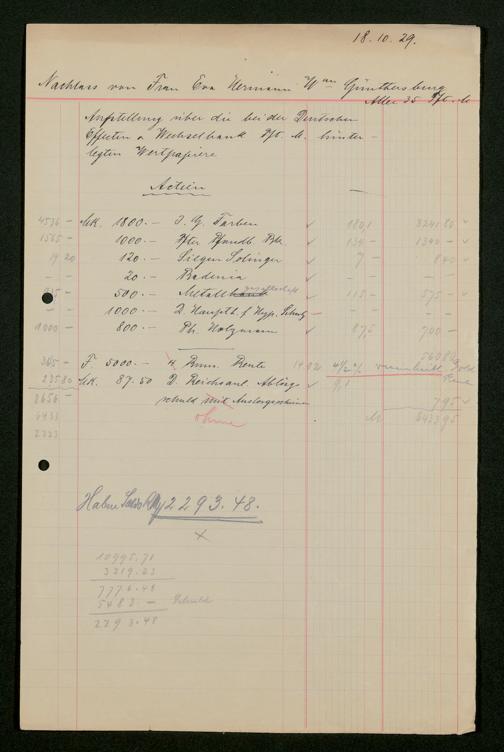 18.10.29.
Nachlass von Frau Eva Hermann Wwe Günthersburg
Allee 35 Fft. M
Aufstellung über die bei der Deutschen
Effecten u Wechselbank Fft. M. hinter-
legten Wertpapiere
Actien
4536 - Mk. 1800.- I. G. Farben 180,1 3241 80
1565 - 1000.- Ffter Pfandb. Bk. 134 - 1340 -
19 20 120.- Siegen Solinger 7 - 8 40
- - 20.- Badenia - -
500.- Metallbank gesellschaft 115 - 575 -
- - 1000.- D. Hauptb. f Hyp. Schutz - -
1000 - 800.- Ph. Holzmann 87,5 700 -
F. 5000.- 4 Rum. Rente
23580 Mk. 87.50 D. Reichsanl. Ablösgs
8656 - schuld mit Auslosgsscheinen 795
ohne M 6433 95
6433
2223
Habensaldo RM 2293.48.
x
10995.71
3219.23
7776.48
5483.- Schuld
2293.48